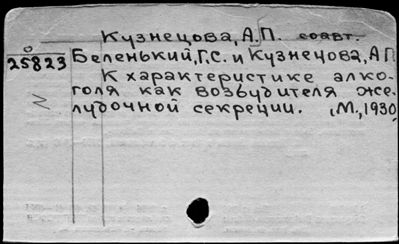 Кузнецова, А.П. соавт.
О
25823 Беленький, Г.С. и Кузнецова, А П
К характеристике алко-
голя как возбудителя же-
лудочной секреции. М., 1930